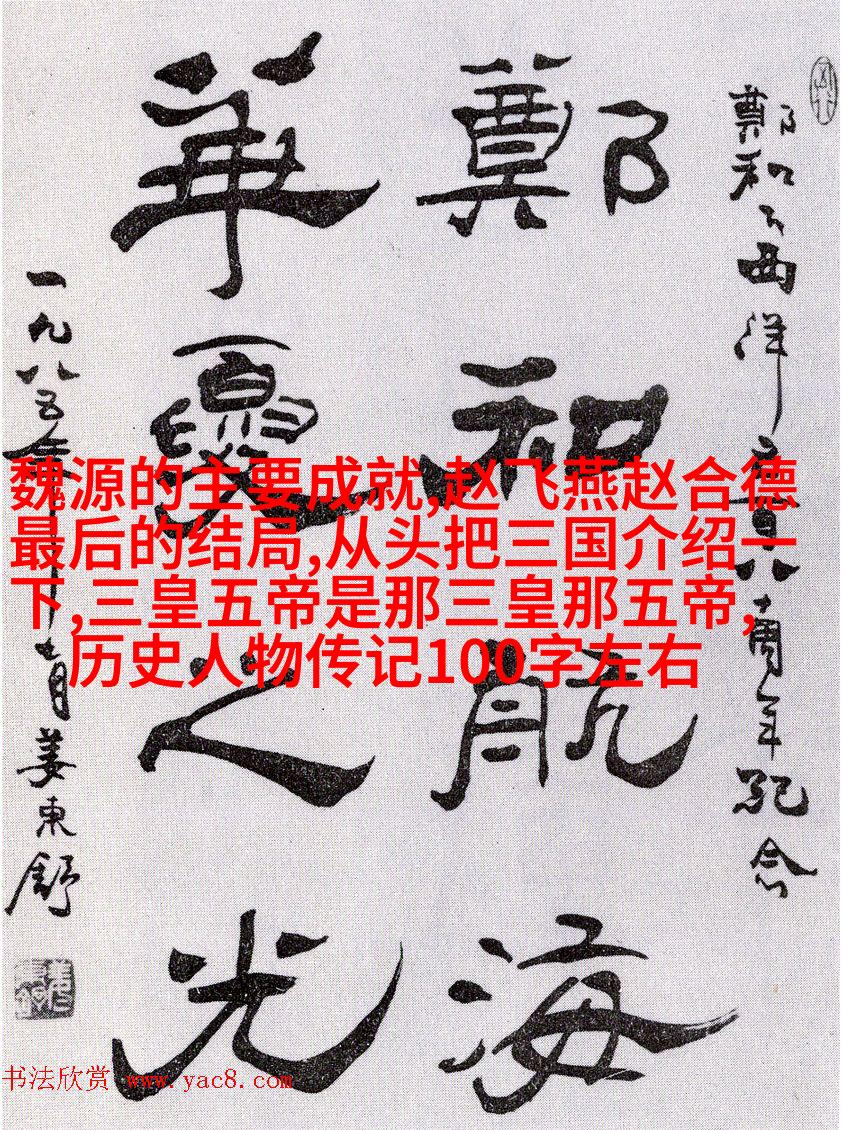 鄭和下西洋五百八十周年紀念
鄭和航海
華夏之光
一九八五年十一月姜東舒
魏源的主要成就,赵飞燕赵合德
最后的结局,从头把三国介绍一
下,三皇五帝是那三皇那五帝,
历史人物传记100字左右
书法欣赏 www.yac8.com